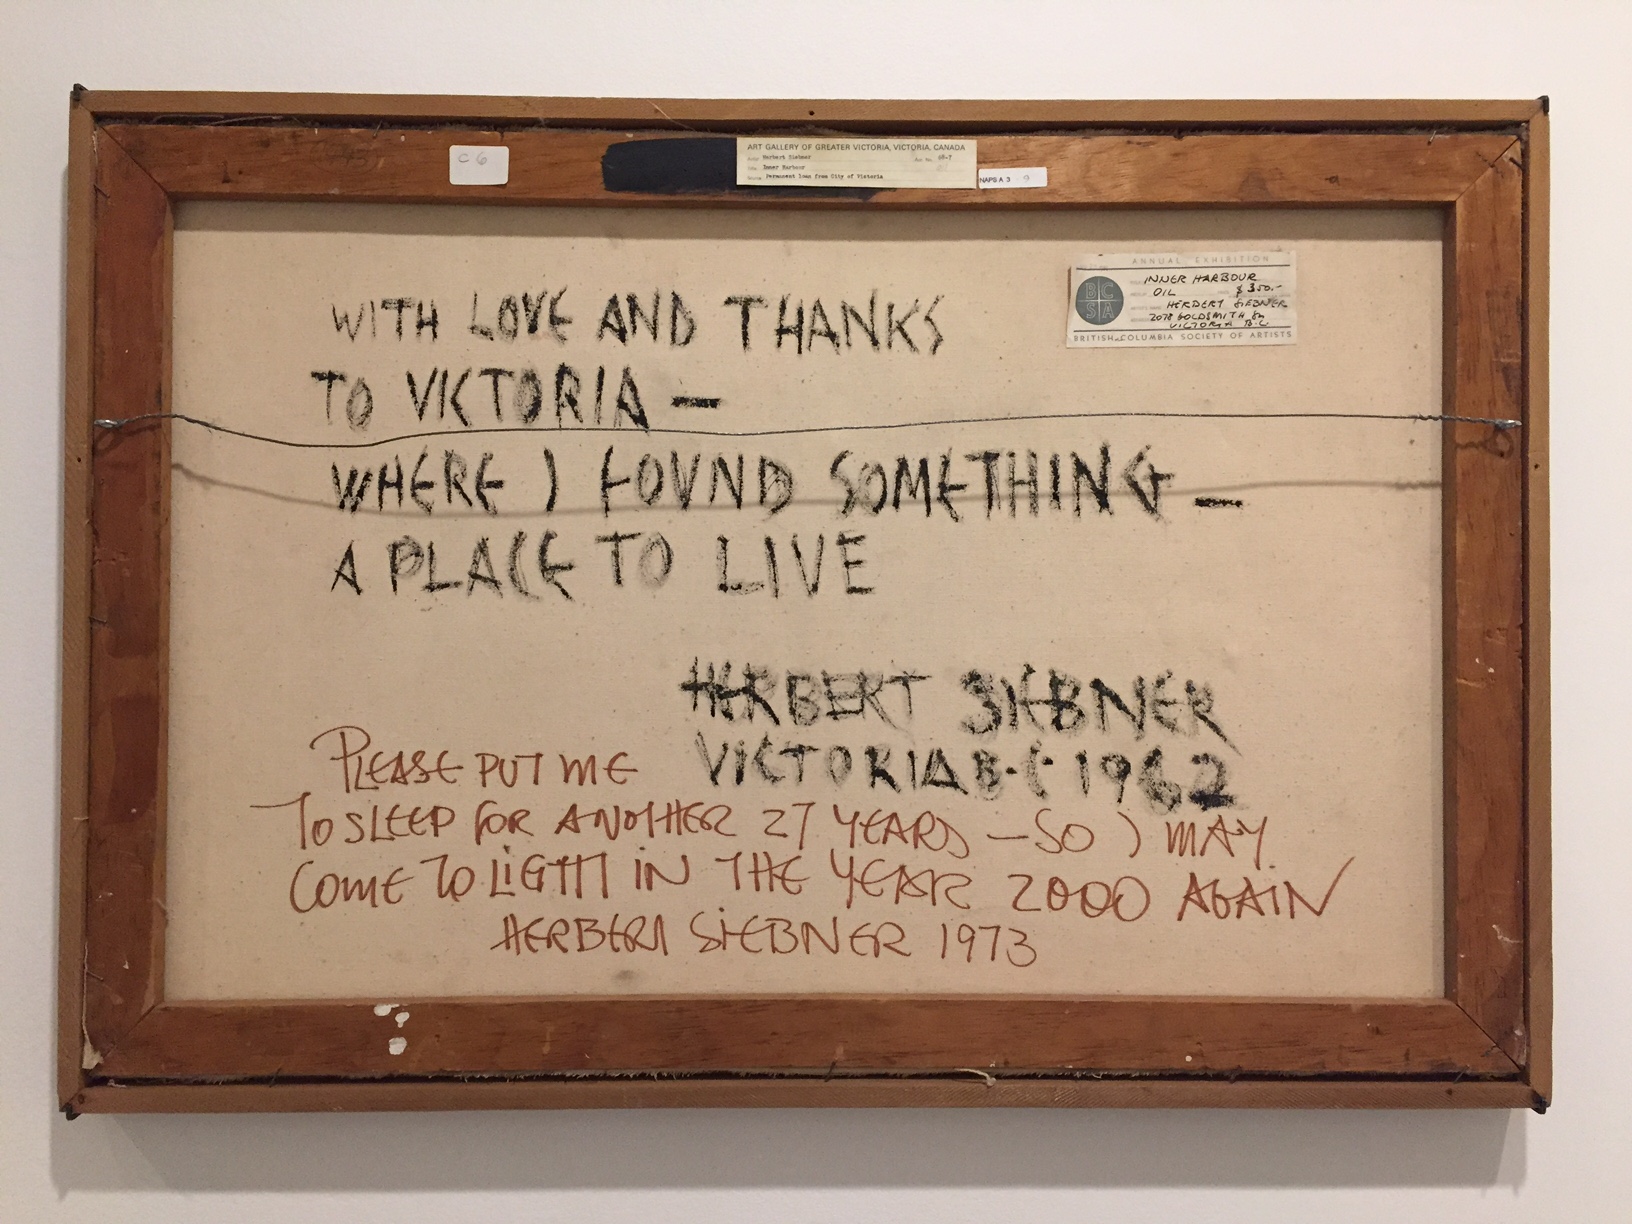 C 6
ART GALLERY OF GREATER VICTORIA, VICTORIA, CANADA
Herbert Siebner
Inner Harbour
Permanent loan from City of Victoria
NAPS A 3 9
ANNUAL EXHIBITION
BC
SA
INNER HARBOUR
OIL $350.-
HERBERT SIEBNER
2078 GOLDSMITH St
VICTORIA B.C
BRITISH COLUMBIA SOCIETY OF ARTISTS
WITH LOVE AND THANKS
TO VICTORIA —
WHERE I FOUND SOMETHING —
A PLACE TO LIVE
HERBERT SIEBNER
VICTORIA B.C. 1962
PLEASE PUT ME
TO SLEEP FOR ANOTHER 27 YEARS — SO I MAY
COME TO LIGTH IN THE YEAR 2000 AGAIN
HERBERT SIEBNER 1973